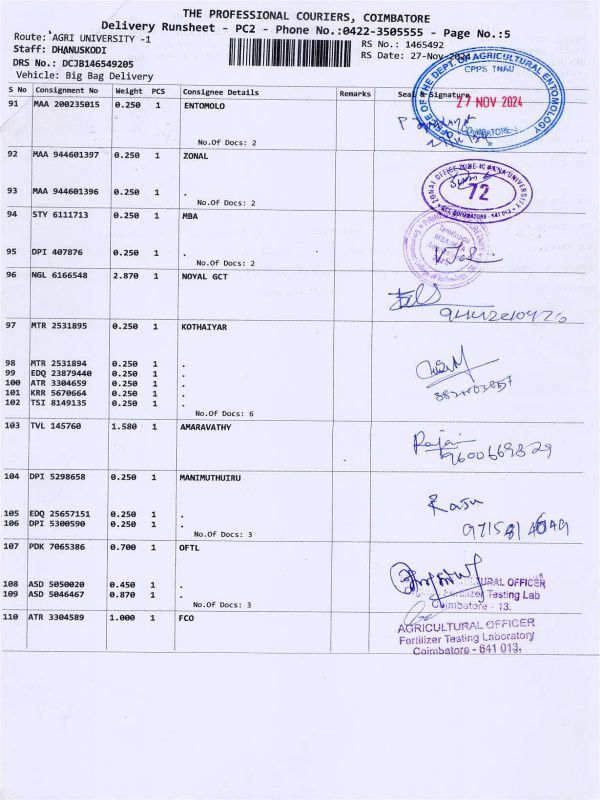 THE PROFESSIONAL COURIERS, COIMBATORE
Delivery Runsheet - PC2 - Phone No.:0422-3505555 - Page No.:5
Route: AGRI UNIVERSITY -1
RS No.: 1465492
Staff: DHANUSKODI
RS Date: 27-Nov-2024
DRS No.: DCJB146549205
Vehicle: Big Bag Delivery
S No Consignment No Weight PCS Consignee Details Remarks Seal & Signature
91 MAA 200235015 0.250 1 ENTOMOLO
No.Of Docs: 2
92 MAA 944601397 0.250 1 ZONAL
93 MAA 944601396 0.250 1 .
No.Of Docs: 2
94 STY 6111713 0.250 1 MBA
95 DPI 407876 0.250 1 .
No.Of Docs: 2
96 NGL 6166548 2.870 1 NOYAL GCT
97 MTR 2531895 0.250 1 KOTHAIYAR
98 MTR 2531894 0.250 1 .
99 EDQ 23879440 0.250 1 .
100 ATR 3304659 0.250 1 .
101 KRR 5670664 0.250 1 .
102 TSI 8149135 0.250 1 .
No.Of Docs: 6
103 TVL 145760 1.580 1 AMARAVATHY
104 DPI 5298658 0.250 1 MANIMUTHUIRU
105 EDQ 25657151 0.250 1 .
106 DPI 5300590 0.250 1 .
No.Of Docs: 3
107 PDK 7065386 0.700 1 OFTL
108 ASD 5050020 0.450 1 .
109 ASD 5046467 0.870 1 .
No.Of Docs: 3
110 ATR 3304589 1.000 1 FCO
OFFICE OF THE DEPT. OF AGRICULTURAL ENTOMOLOGY
CPPS TNAU
27 NOV 2024
COIMBATORE-3
72
COIMBATORE 641 013
Rajan
9600669829
Raju
URAL OFFICER
Testing Lab
Coimbatore - 13.
AGRICULTURAL OFFICER
Fertilizer Testing Laboratory
Coimbatore - 641 013.